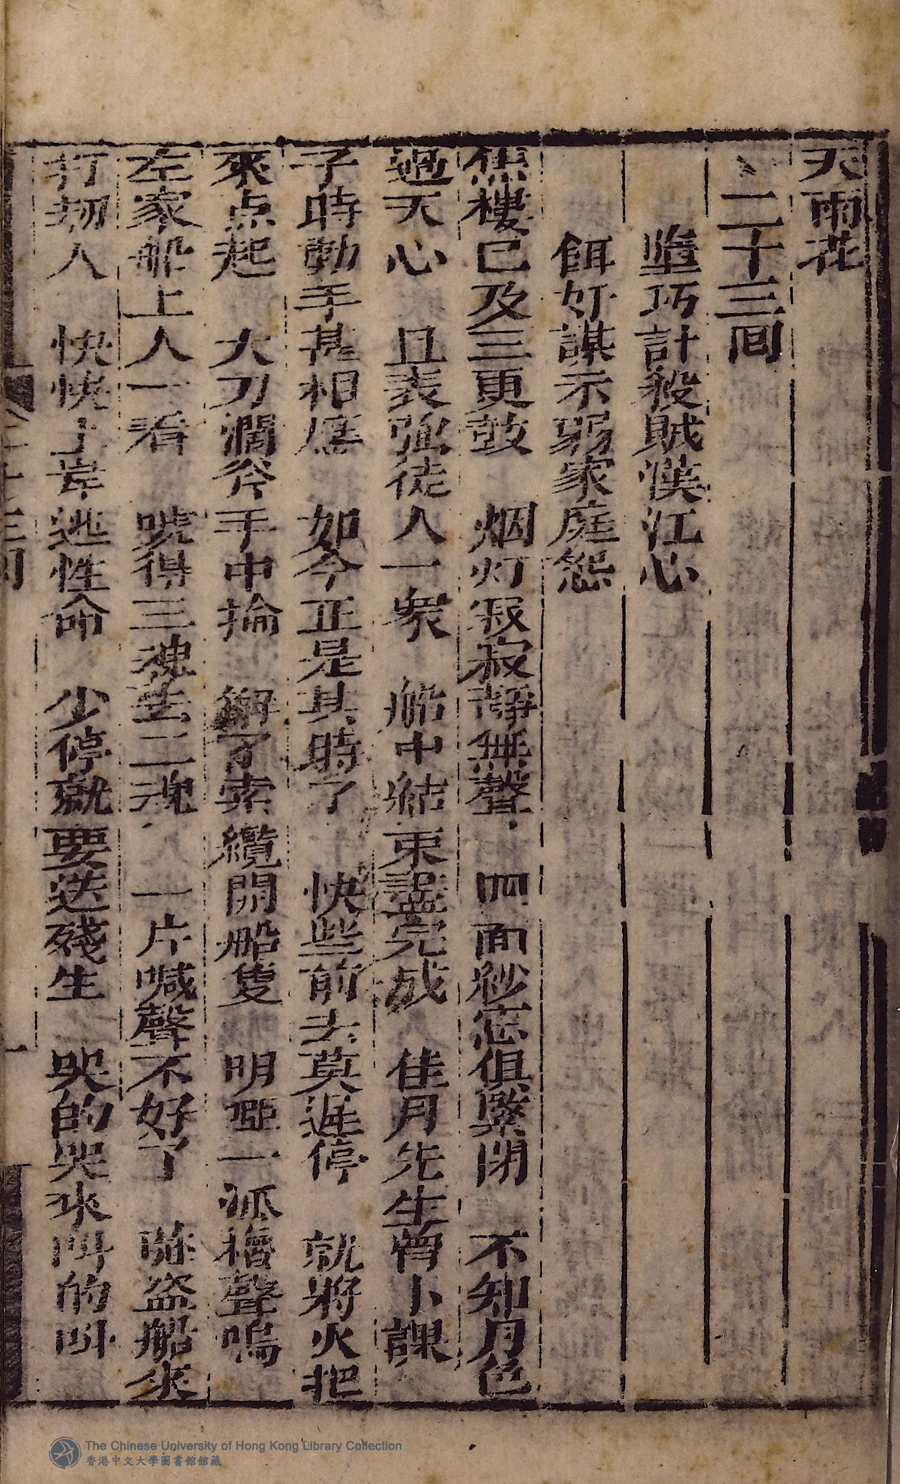 天雨花
二十三囬
墮巧計殺賊潢江心
餌奸謀示弱家庭怨
焦樓已及三更鼓 烟灯寂寂靜無聲 四面紗窓俱緊闭 不知月色
過天心 且表強徒人一衆 船中結束盡完成 佳月先生曾卜課
子時動手甚相應 如今正是其時了 快些前去莫遲停 就將火把
來点起 大刀濶斧手中掄 觧了索纜開船隻 明哑一派櫓聲鳴
左家船上人一看 唬得三魂去二魂 一片喊聲不好了 强盗船來
打刼人 快快了岸逃性命 少停就要送殘生 哭的哭來呌的呌
二十三囬
一
The Chinese University of Hong Kong Library Collection
香港中文大學圖書館館藏